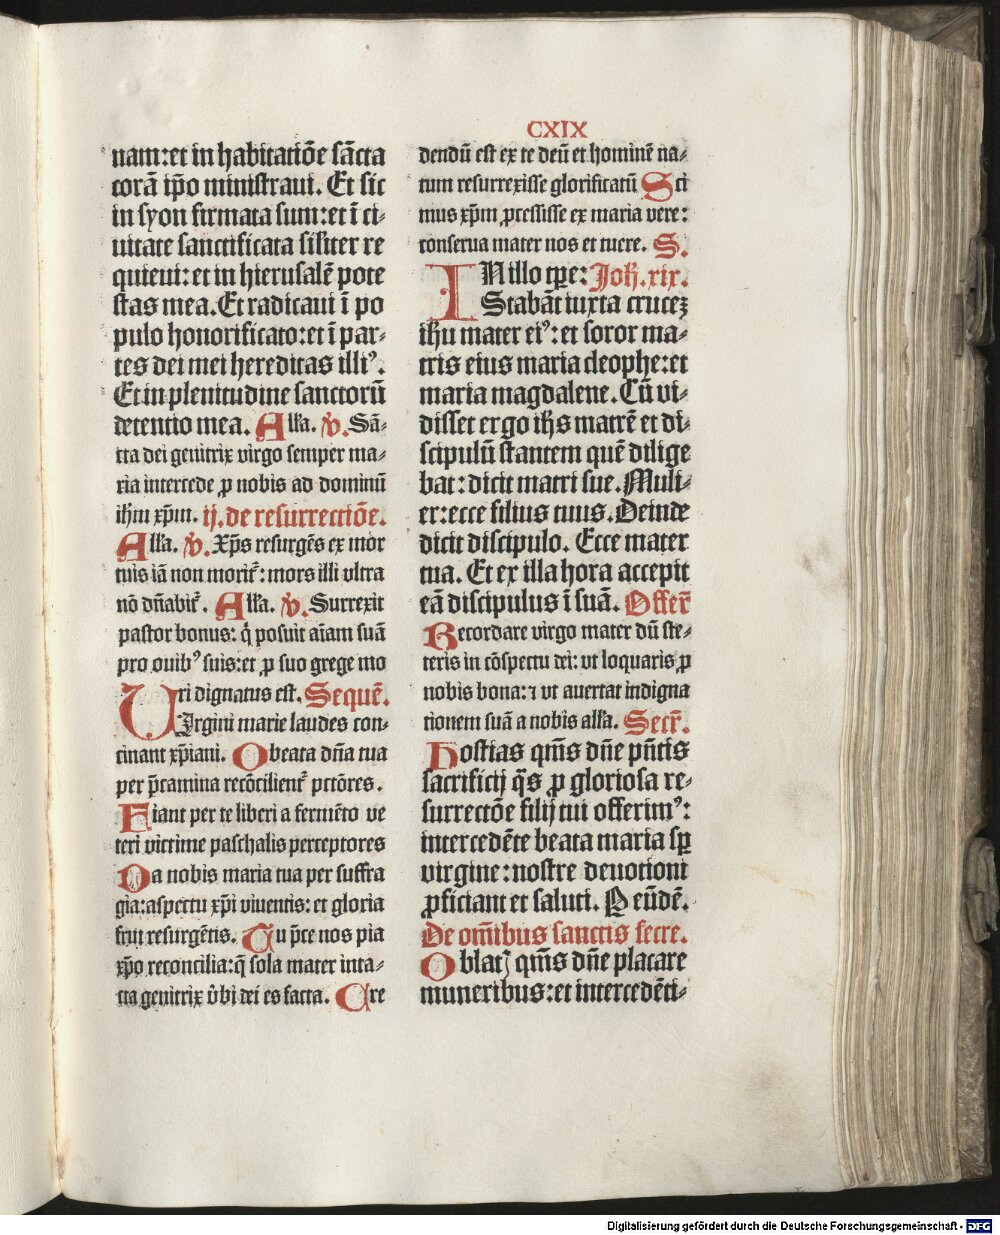 CXIX
nam:et in habitatiōe sācta
corā ip̄o ministraui. Et sic
in syon firmata sum:et ī ci⸗
uitate sanctificata sil'iter re
quieui:et in hierusalē pote
stas mea. Et radicaui ī po
pulo honorificato:et ī par⸗
tes dei mei hereditas illiꝰ.
Et in plenitudine sanctorū
detentio mea. Al'la. ꝟ. Sā⸗
cta dei genitrix virgo semper ma⸗
ria intercede ꝓ nobis ad dominū
ih̄m xp̄m. ij. de resurrectiōe.
Al'la. ꝟ. Xp̄s resurgēs ex mor
tuis iā non morit᷑: mors illi vltra
nō dn̄abit᷑. Al'la. ꝟ. Surrexit
pastor bonus: q̇ posuit aīam suā
pro ouibꝰ suis:et ꝓ suo grege mo
ri dignatus est. Sequē.
VIrgini marie laudes con⸗
cinant xp̄iani. O beata dn̄a tua
per p̄camina recōcilient᷑ pctōres.
Fiant per te liberi a fermēto ve
teri victime paschalis perceptores
Da nobis maria tua per suffra
gia:aspectu xp̄i viuentis: et gloria
frui resurgētis. Tu p̄ce nos pia
xp̄o reconcilia:q̄ sola mater inta⸗
cta genitrix v̄bi dei es facta. Cre
dendū est ex te deū et hominē na⸗
tum resurrexisse glorificatū Sci
mus xp̄m ꝓcessisse ex maria vere:
conserua mater nos et tuere. S.
IN illo tp̄e: Joh̄. xix.
Stabāt iuxta crucez
ih̄u mater eiꝰ: et soror ma⸗
tris eius maria cleophe:et
maria magdalene. Cū vi⸗
disset ergo ih̄s matrē et di⸗
scipulū stantem quē dilige
bat: dicit matri sue. Muli⸗
er:ecce filius tuus. Deinde
dicit discipulo. Ecce mater
tua. Et ex illa hora accepit
eā discipulus ī suā. Offer̄
Recordare virgo mater dū ste⸗
teris in cōspectu dei: vt loquaris ꝓ
nobis bona: ⁊ vt auertat indigna
tionem suā a nobis al'la. Secr̄.
Hostias qm̄s dn̄e pn̄tis
sacrificij q̄s ꝓ gloriosa re⸗
surrectōe filij tui offerimꝰ:
intercedēte beata maria sp̄
virgine: nostre deuotioni
ꝓficiant et saluti. P eūdē.
De om̄ibus sanctis secre.
Oblatꝭ qm̄s dn̄e placare
muneribus:et intercedēti⸗
Digitalisierung gefördert durch die Deutsche Forschungsgemeinschaft - DFG